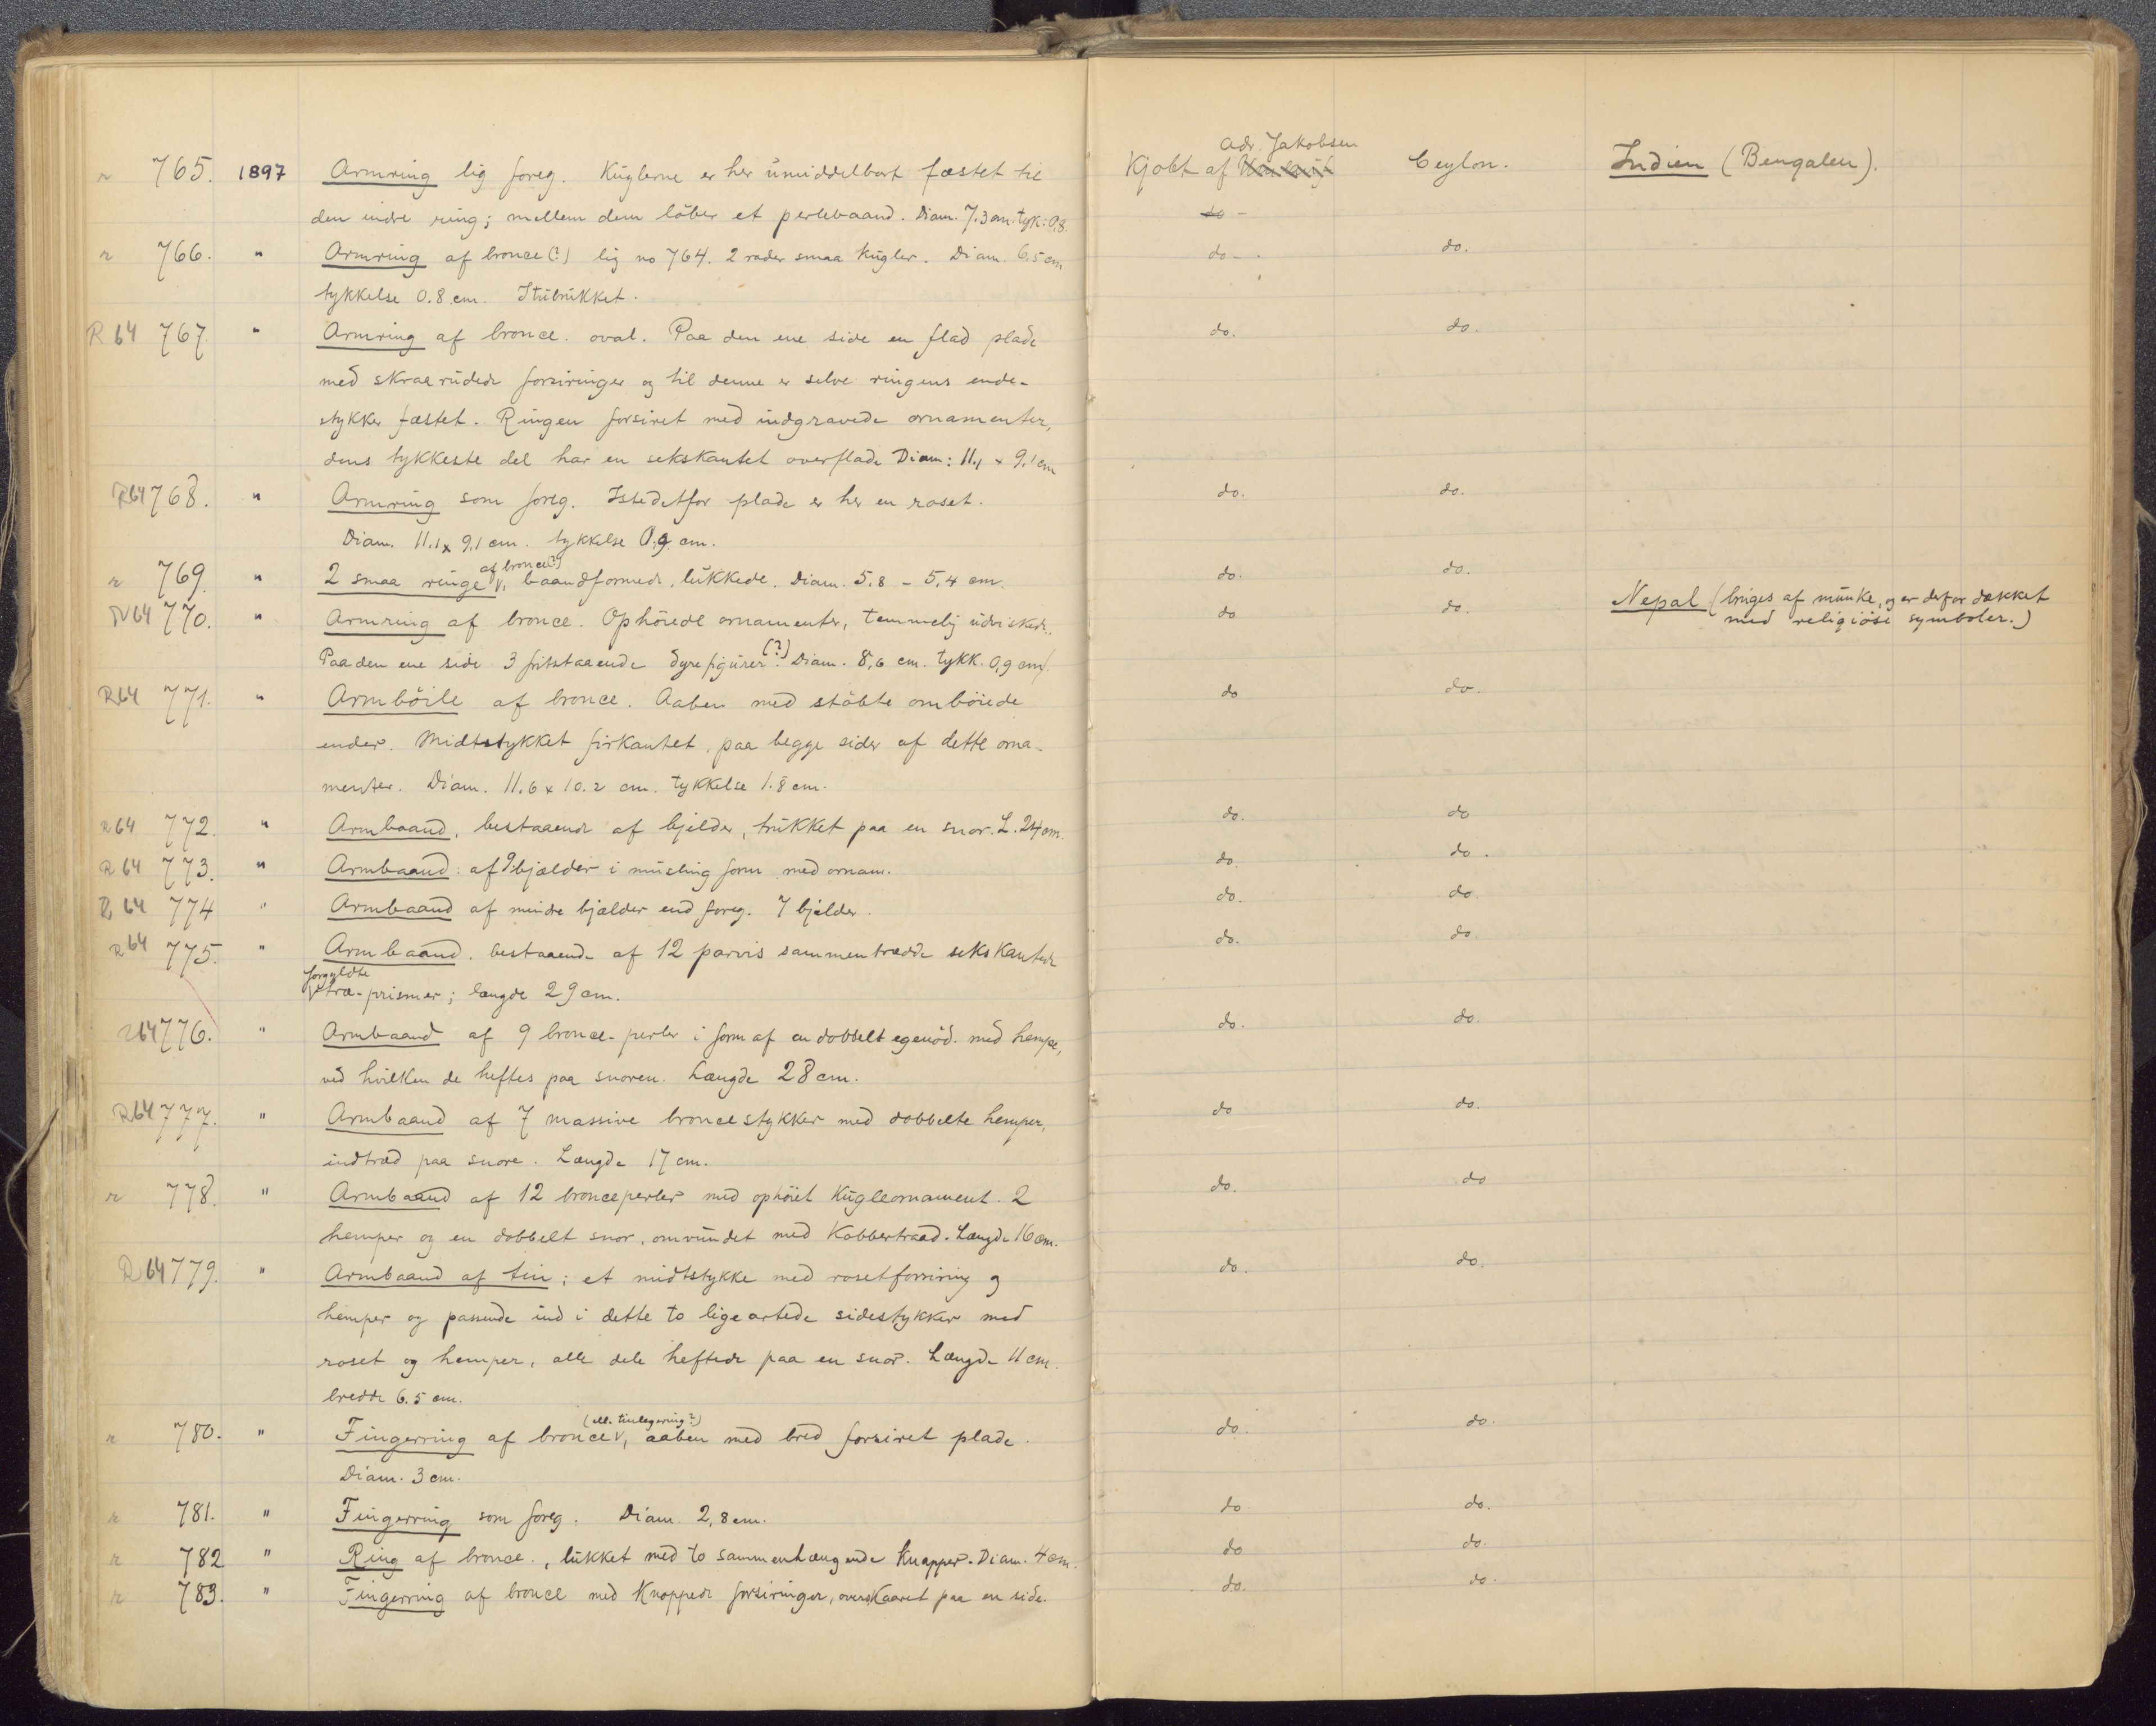 r 765. 1897 Armring lig foreg. Kuglerne er her umiddelbart fæstet til
den indre ring; mellem dem löber et perlebaand. Diam. 7.3 cm. tyk: 0,8.
r 766. " Armring af bronce (?) lig no 764. 2 rader smaa kugler. Diam. 6,5 cm
tykkelse 0.8 cm. Itubrukket.
R 64 767 " Armring af bronce. oval. Paa den ene side en flad plade
med skraarudede forsiringer og til denne er selve ringens ende-
stykker fæstet. Ringen forsiret med indgravede ornamenter,
dens tykkeste del har en sekskantet overflade Diam: 11,1 x 9,1 cm
R64 768. " Armring som foreg. Istedetfor plade er her en roset.
Diam. 11,1 x 9,1 cm. tykkelse 0,9 cm.
af bronce(?)
r 769. " 2 smaa ringe v, baandformede, lukkede. Diam. 5,8 - 5,4 cm.
R64 770. " Armring af bronce. Ophöiede ornamenter, temmelig udviskede.
Paa den ene side 3 fritstaaende dyrefigurer (?). Diam. 8,6 cm. tykk. 0,9 cm.
R64 771. " Armböile af bronce. Aaben med stöbte omböiede
ender. Midtstykket firkantet, paa begge sider af dette orna-
menter. Diam. 11.6 x 10.2 cm. tykkelse 1.8 cm.
R64 772. " Armbaand, bestaaende af bjelder, trukket paa en snor. L. 24 cm.
R 64 773. " Armbaand: af 9 bjælder i musling form med ornam.
R 64 774 " Armbaand af mindre bjælder end foreg. 7 bjelder.
R64 775. " Armbaand. bestaaende af 12 parvis sammentrædde sekskantede
forgyldte
v træ-prismer; længde 29 cm.
R64 776. " Armbaand af 9 bronce-perler i form af en dobbelt egenöd. med hempe,
ved hvilken de heftes paa snoren. Længde 28 cm.
R64 777. " Armbaand af 7 massive broncestykker med dobbelte hemper,
indtræd paa snore. Længde 17 cm.
r 778. " Armbaand af 12 bronceperler med ophöiet kugleornament. 2
hemper og en dobbelt snor, omvundet med Kobbertraad. Længde 16 cm.
R 64 779. " Armbaand af tin; et midtstykke med rosetforsiring og
hemper og passende ind i dette to ligeartede sidestykker med
roset og hemper, alle dele heftede paa en snor. Længde 11 cm.
bredde 6.5 cm.
(ell. tinlegering?)
r 780. " Fingerring af bronce v, aaben med bred forsiret plade.
Diam. 3 cm.
r 781. " Fingerring som foreg. Diam. 2,8 cm.
r 782 " Ring af bronce., lukket med to sammenhængende knapper. Diam. 4 cm.
r 783. " Fingerring af bronce med Knoppede forsiringer, overskaaret paa en side.
Adr. Jakobsen
Kjobt af Ceylon. Indien (Bengalen).
do -
do - do.
do. do.
do. do.
do. do.
do do. Nepal (bruges af munke, og er derfor dækket
med religiöse symboler.)
do do.
do. do
do. do.
do. do.
do. do.
do. do.
do do.
do. do
do. do.
do. do.
do do.
do do.
do. do.